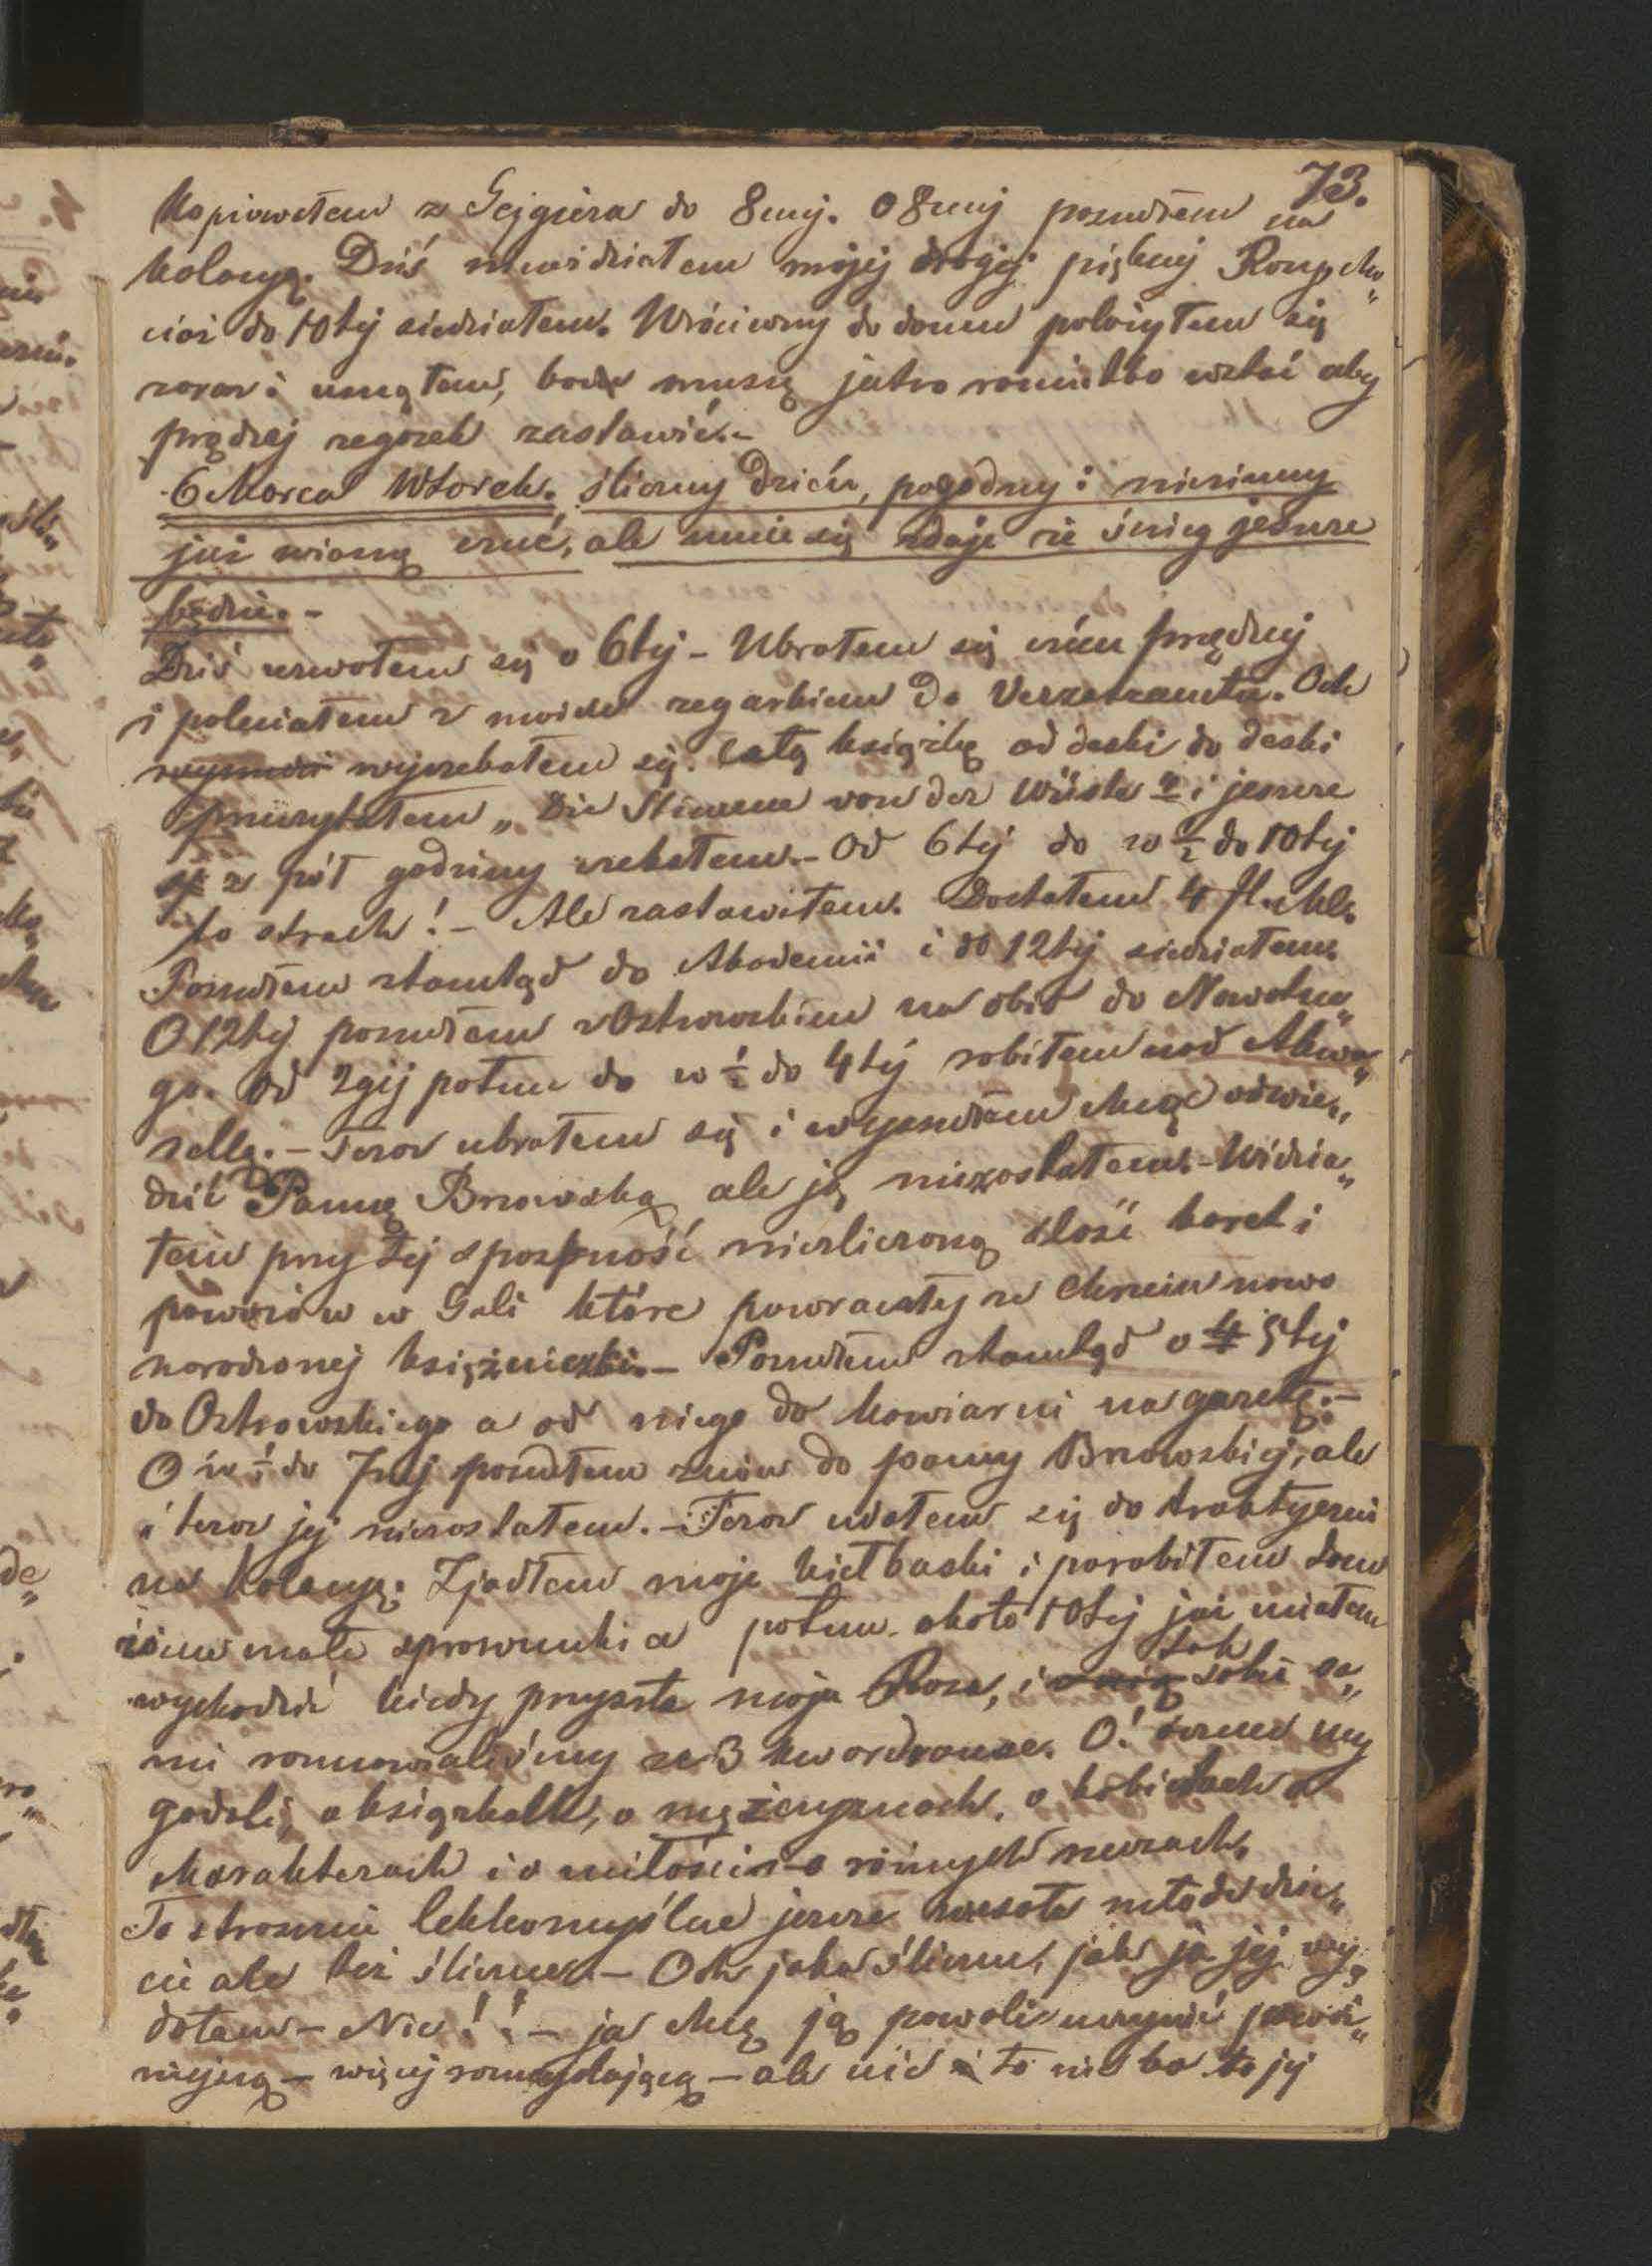 73.
Kopiowałem z Gejgiera do 8mej. O 8mej poszedłem na
kolacyę. Dziś niewidziałem mojej drogiej pięknej Rouge cho„
ciaż do 10tej siedziałem. Wróciwszy do domu położyłem się
zaraz i usnąłem, bo muszę jutro raniutko wstać aby
prędzej zegarek zastawić.-
6 Marca Wtorek. śliczny dzień, pogodny i niezimny
już wiosnę czuć, ale mnie się zdaje że śnieg jeszcze
będzie.-
Dziś zerwałem się o 6tej - Ubrałem się czém prędzej
i poleciałem z moim zegarkiem do Versatzamtu. Och
wyczekałem się. Całą książkę od deski do deski
przeczytałem „Die Stimme von der Wüste" i jeszcze
z pół godziny czekałem.- Od 6tej do w ½ do 10tej
to strach! - Ale zastawiłem. Dostałem 4 fl.
Poszedłem stamtąd do Akademii i do 12tej siedziałem.
O 12tej poszedłem z Ostrowskim na obiad do Nowotne„
go. Od 2giej potem do w ½ do 4tej robiłem nad Akwa„
rellą. - Teraz ubrałem się i wyszedłem chcąc odwie„
dzić Pannę Brzowską ale ją niezastałem. - Widzia„
łem przy tej sposobność niezliczoną ilość karet i
powozów w Gali które powracały ze Chrzcin nowo
narodzonej księżniczki. - Poszedłem stamtąd o 5tej
do Ostrowskiego a od niego do kawiarni na gazetę. -
O w ½ do 7mej poszedłem znów do panny Brzowskiej, ale
i teraz jej niezastałem. - Teraz udałem się do traktyerni
na kolacyę. Zjadłem moje kiełbaski i porobiłem tam
różne małe sprawunki a potem około 10tej już miałem
wychodzić kiedy przyszła moja Rosa, i tak sobie sa„
mi rozmawialiśmy ze 3 kwardranse. O! czemeś my
gadali, o książkach, o mężczyznach, o kobietach o
charakterach i o miłości o różnych rzeczach.
To strasznie lekkomyślne jeszcze wesołe młode dzie„
cię ale też śliczne. - Och jaka śliczna, jak ja jej
- Nie!! - ja chcę ją powoli uczynić poważ„
niejszą - więcej rozmyślającą - ale nie i to nie bo to jej